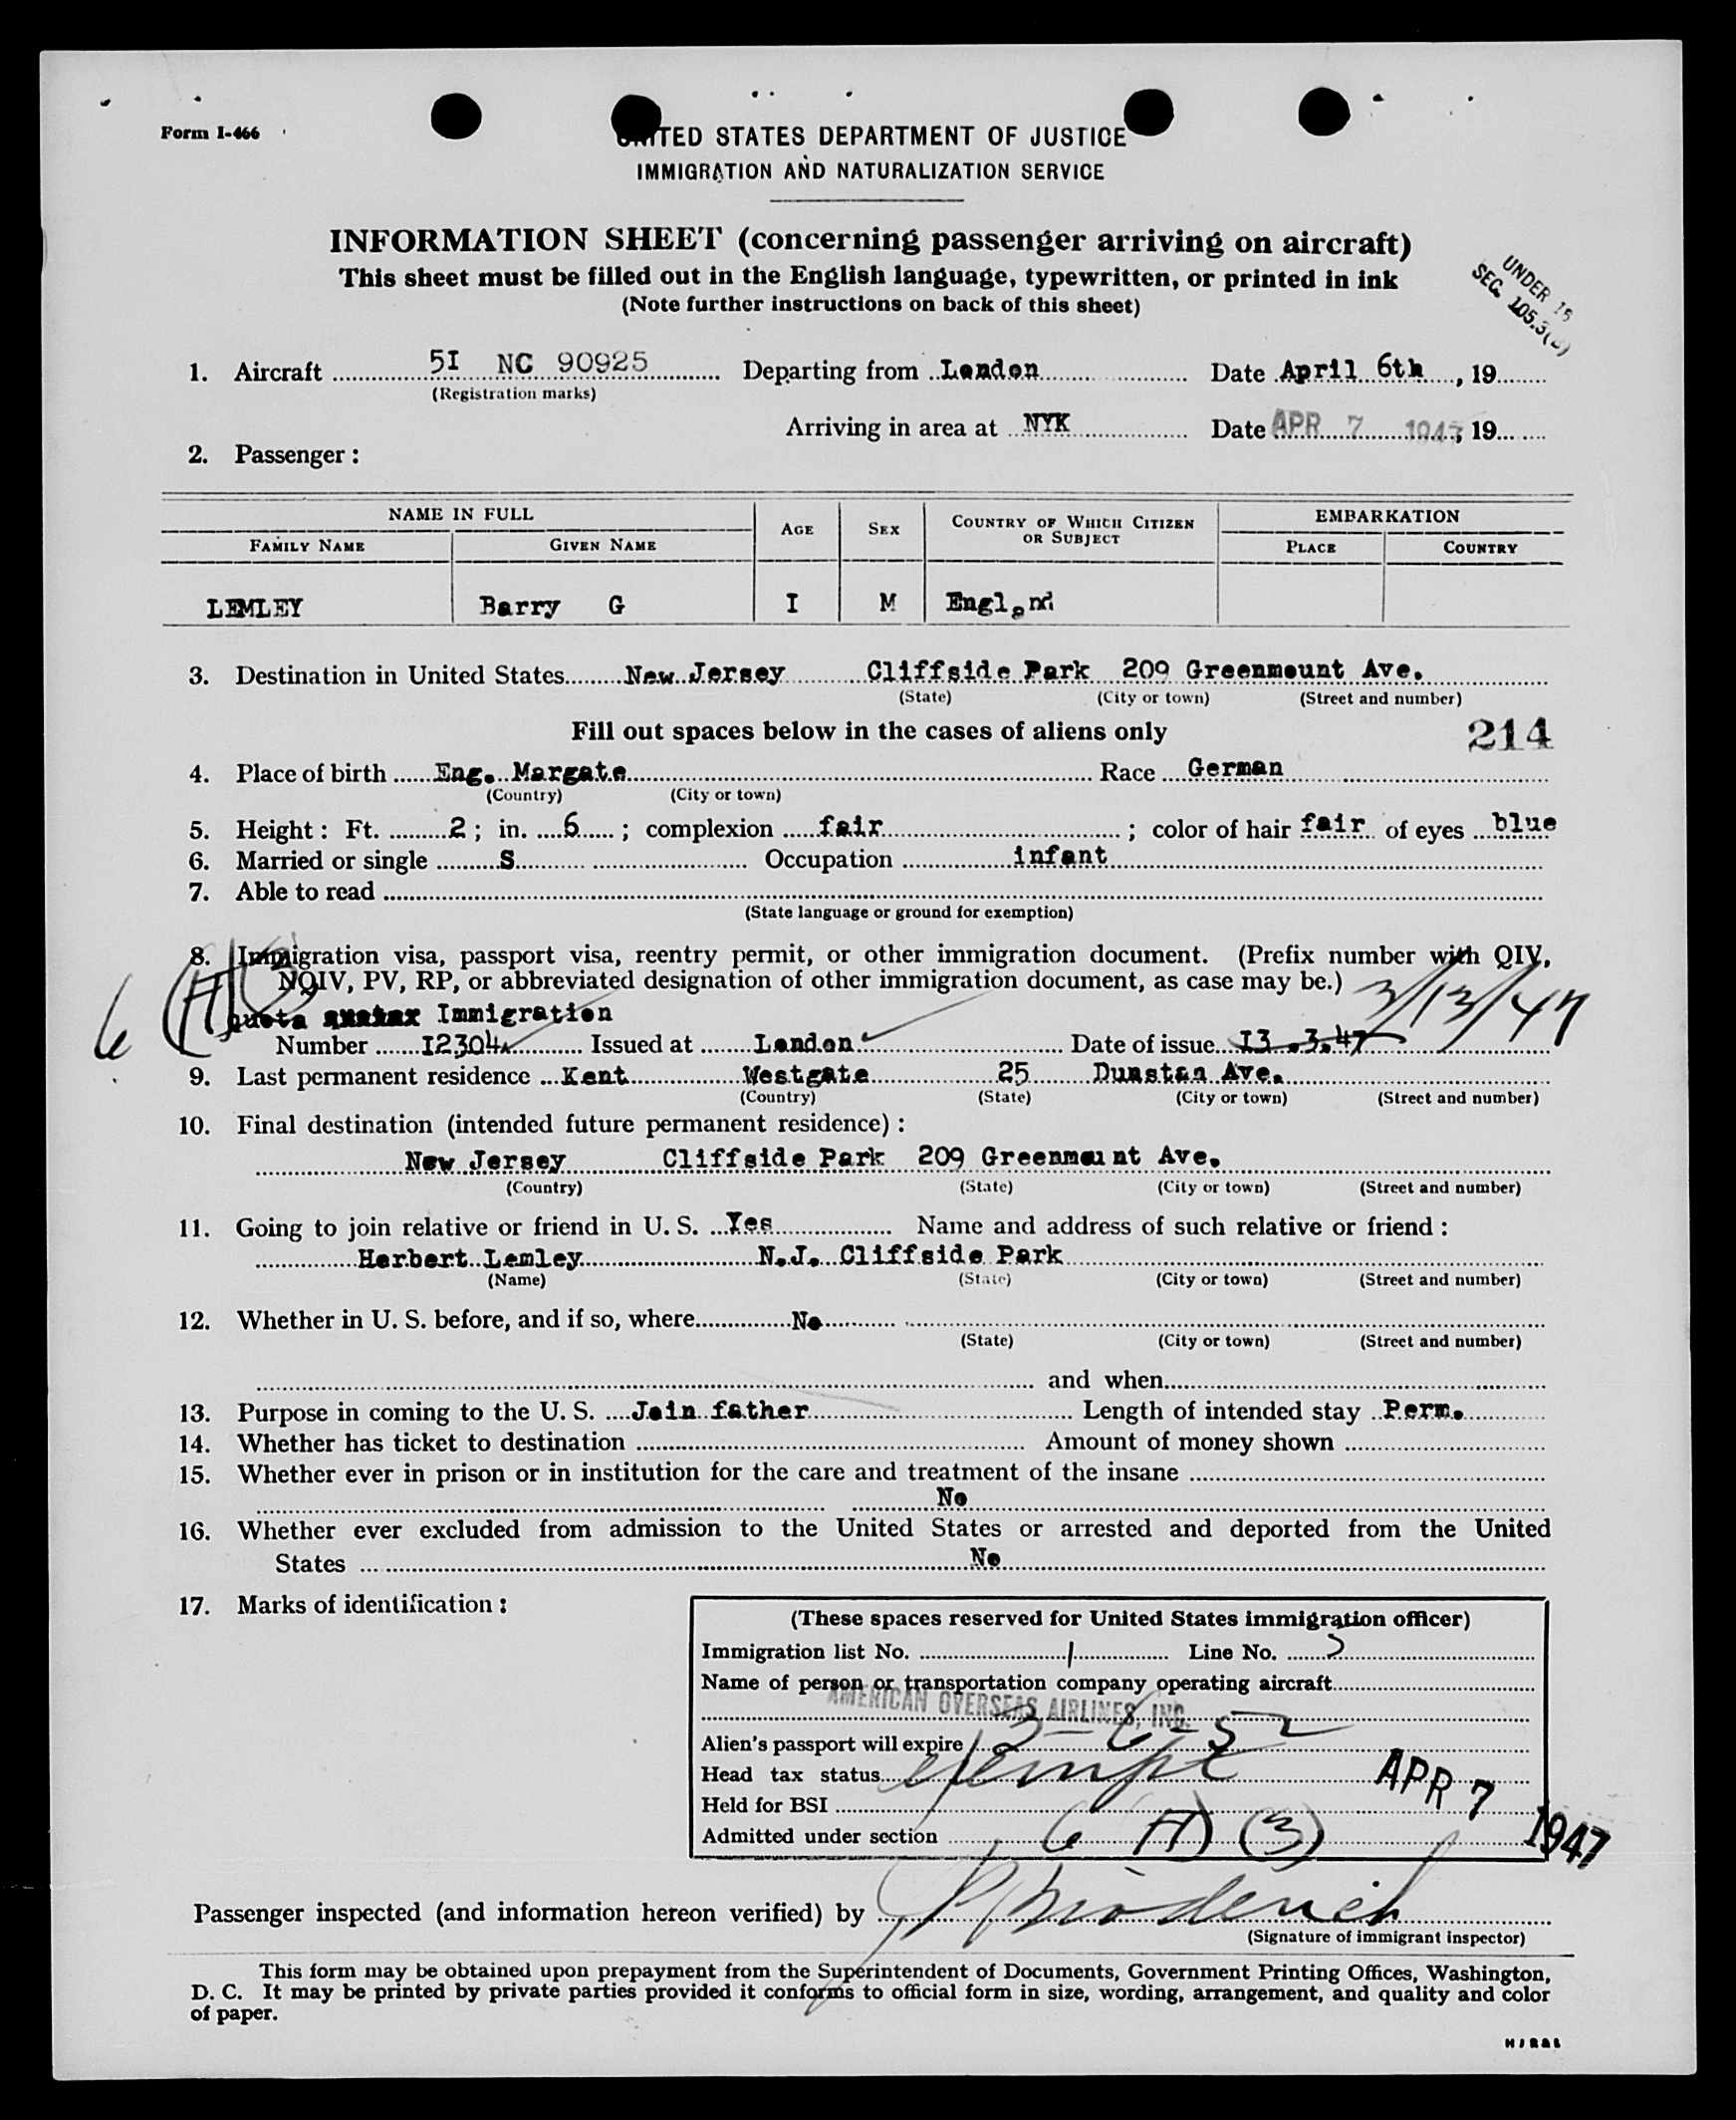 Form I-466
UNITED STATES DEPARTMENT OF JUSTICE
IMMIGRATION AND NATURALIZATION SERVICE
INFORMATION SHEET (concerning passenger arriving on aircraft)
This sheet must be filled out in the English language, typewritten, or printed in ink
(Note further instructions on back of this sheet)
UNDER 16
SEC. 105.3(
1. Aircraft 5I NC 90925 Departing from London Date April 6th, 19
(Registration marks)
Arriving in area at NYK Date APR 7 1947, 19
2. Passenger:
NAME IN FULL AGE SEX COUNTRY OF WHICH CITIZEN OR SUBJECT EMBARKATION
FAMILY NAME GIVEN NAME PLACE COUNTRY
LEMLEY Barry G I M England
3. Destination in United States New Jersey Cliffside Park 209 Greenmount Ave.
(State) (City or town) (Street and number)
Fill out spaces below in the cases of aliens only 214
4. Place of birth Eng. Margate Race German
(Country) (City or town)
5. Height: Ft. 2; in. 6; complexion fair; color of hair fair of eyes blue
6. Married or single S Occupation infant
7. Able to read
(State language or ground for exemption)
8. Immigration visa, passport visa, reentry permit, or other immigration document. (Prefix number with QIV,
NQIV, PV, RP, or abbreviated designation of other immigration document, as case may be.) 3/13/47
6 (A) quota Immigration
Number I2304 Issued at London Date of issue I3.3.47
9. Last permanent residence Kent Westgate 25 Dunstan Ave.
(Country) (State) (City or town) (Street and number)
10. Final destination (intended future permanent residence):
New Jersey Cliffside Park 209 Greenmount Ave.
(Country) (State) (City or town) (Street and number)
11. Going to join relative or friend in U. S. Yes Name and address of such relative or friend:
Herbert Lemley N.J. Cliffside Park
(Name) (State) (City or town) (Street and number)
12. Whether in U. S. before, and if so, where No
(State) (City or town) (Street and number)
and when
13. Purpose in coming to the U. S. Join father Length of intended stay Perm.
14. Whether has ticket to destination Amount of money shown
15. Whether ever in prison or in institution for the care and treatment of the insane
No
16. Whether ever excluded from admission to the United States or arrested and deported from the United
States No
17. Marks of identification:
(These spaces reserved for United States immigration officer)
Immigration list No. 1 Line No. 5
Name of person or transportation company operating aircraft
AMERICAN OVERSEAS AIRLINES, INC.
Alien's passport will expire 2-6-52
Head tax status exempt
Held for BSI
Admitted under section 6 (A) (3)
APR 7 1947
Passenger inspected (and information hereon verified) by
(Signature of immigrant inspector)
This form may be obtained upon prepayment from the Superintendent of Documents, Government Printing Offices, Washington,
D. C. It may be printed by private parties provided it conforms to official form in size, wording, arrangement, and quality and color
of paper.